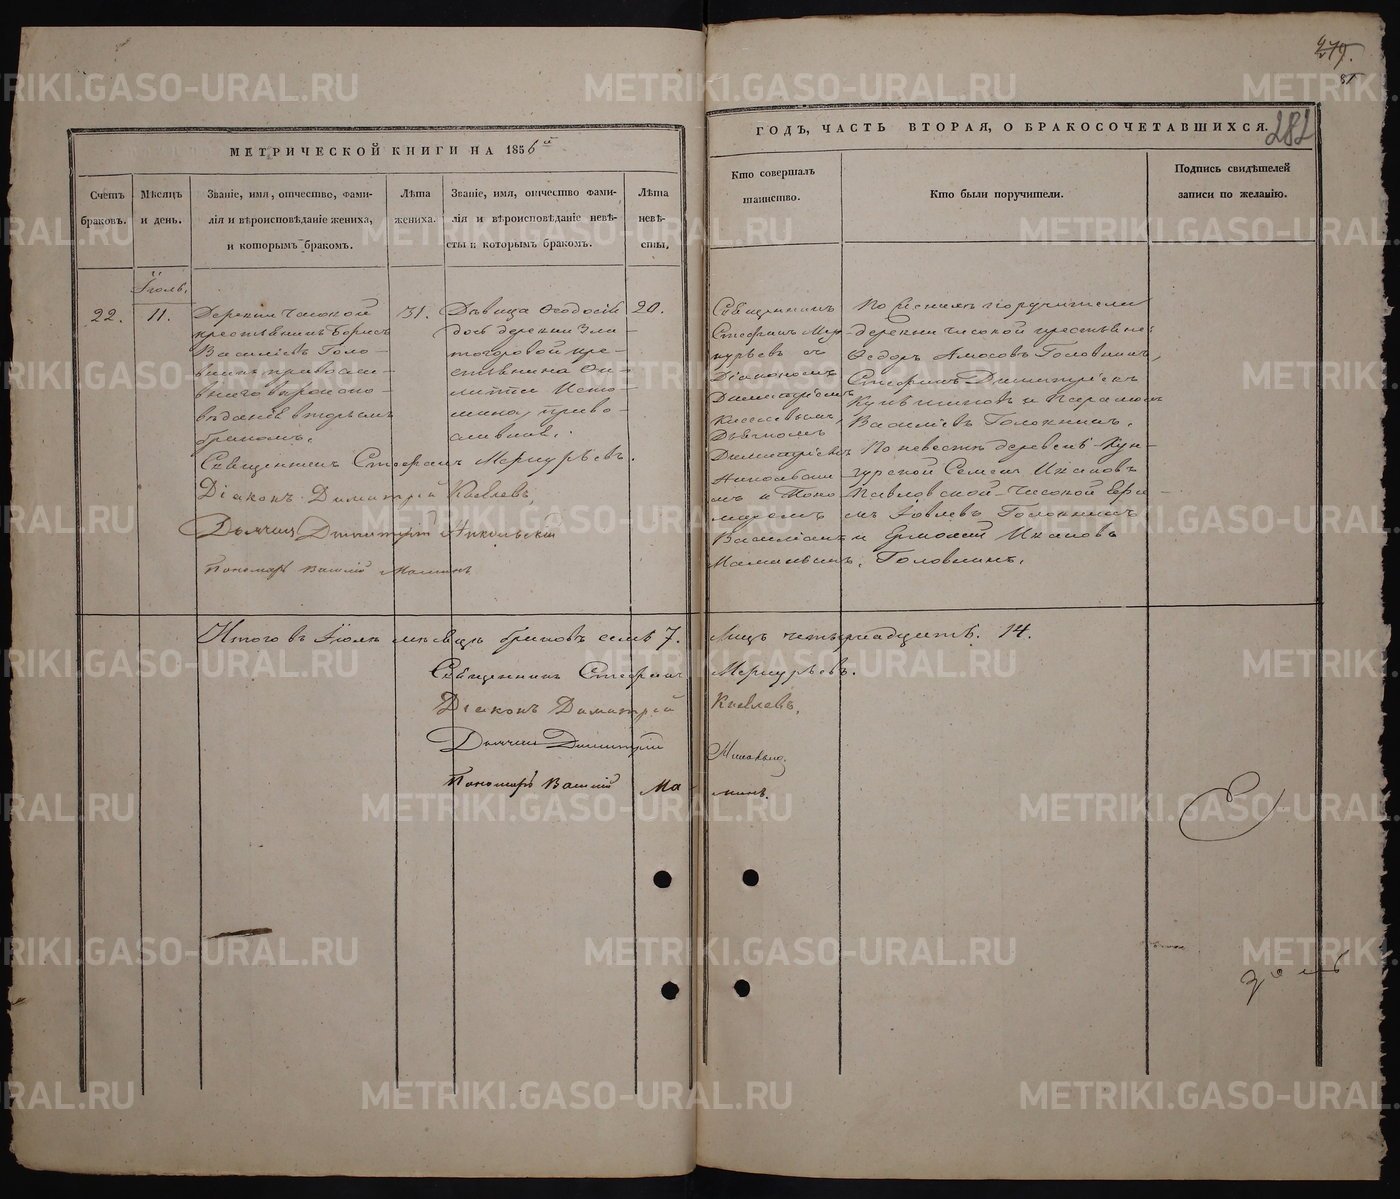 279.
81
282
МЕТРИЧЕСКОЙ КНИГИ НА 1856й
ГОДЪ, ЧАСТЬ ВТОРАЯ, О БРАКОСОЧЕТАВШИХСЯ.
Счетъ браковъ.
Мѣсяцъ и день.
Званіе, имя, отчество, фами-
лія и вѣроисповѣданіе жениха,
и которымъ бракомъ.
Лѣта
жениха.
Званіе, имя, отчество фами-
лія и вѣроисповѣданіе невѣ-
сты и которымъ бракомъ.
Лѣта
невѣ-
сты.
Кто совершалъ
таинство.
Кто были поручители.
Подпись свидѣтелей
записи по желанію.
Іюль.
22.
11.
Деревни Чисокой
крестьянинъ Борисъ
Василіевъ Голо-
внинъ православ-
наго вѣроиспо-
вѣданія вторымъ
бракомъ.
31.
Дѣвица Ѳеодосія
дочь деревни Зла-
тогоровой кре-
стьянина
православная.
20.
Священникъ
Стефанъ Мер-
курьевъ съ
Діакономъ
Димитріемъ
Киселевымъ,
Дьячкомъ
Димитріемъ
Никольски-
мъ и Поно-
маремъ
Василіемъ
Маминымъ.
По женихѣ поручители
деревни Чисокой крестьяне:
Ѳедоръ Амосовъ Головнинъ,
Стефанъ Димитріевъ
и
Василіевъ Головнинъ.
По невестѣ деревень Кун-
гурской Семенъ Ивановъ
Павловской Чисокой
Іовлевъ Головнинъ
и Ермолай Ивановъ
Головнинъ.
Священникъ Стефанъ Меркурьевъ.
Діаконъ Димитрій Киселевъ,
Дьячекъ Димитрій Никольскій
Пономарь Василій Маминъ
Итого въ Іюлѣ мѣсяцѣ браковъ семь 7. Лицъ четырнадцать. 14.
Священникъ Стефанъ Меркурьевъ.
Діаконъ Димитрій Киселевъ,
Дьячекъ Димитрій
Пономарь Василій Маминъ.
METRIKI.GASO-URAL.RU